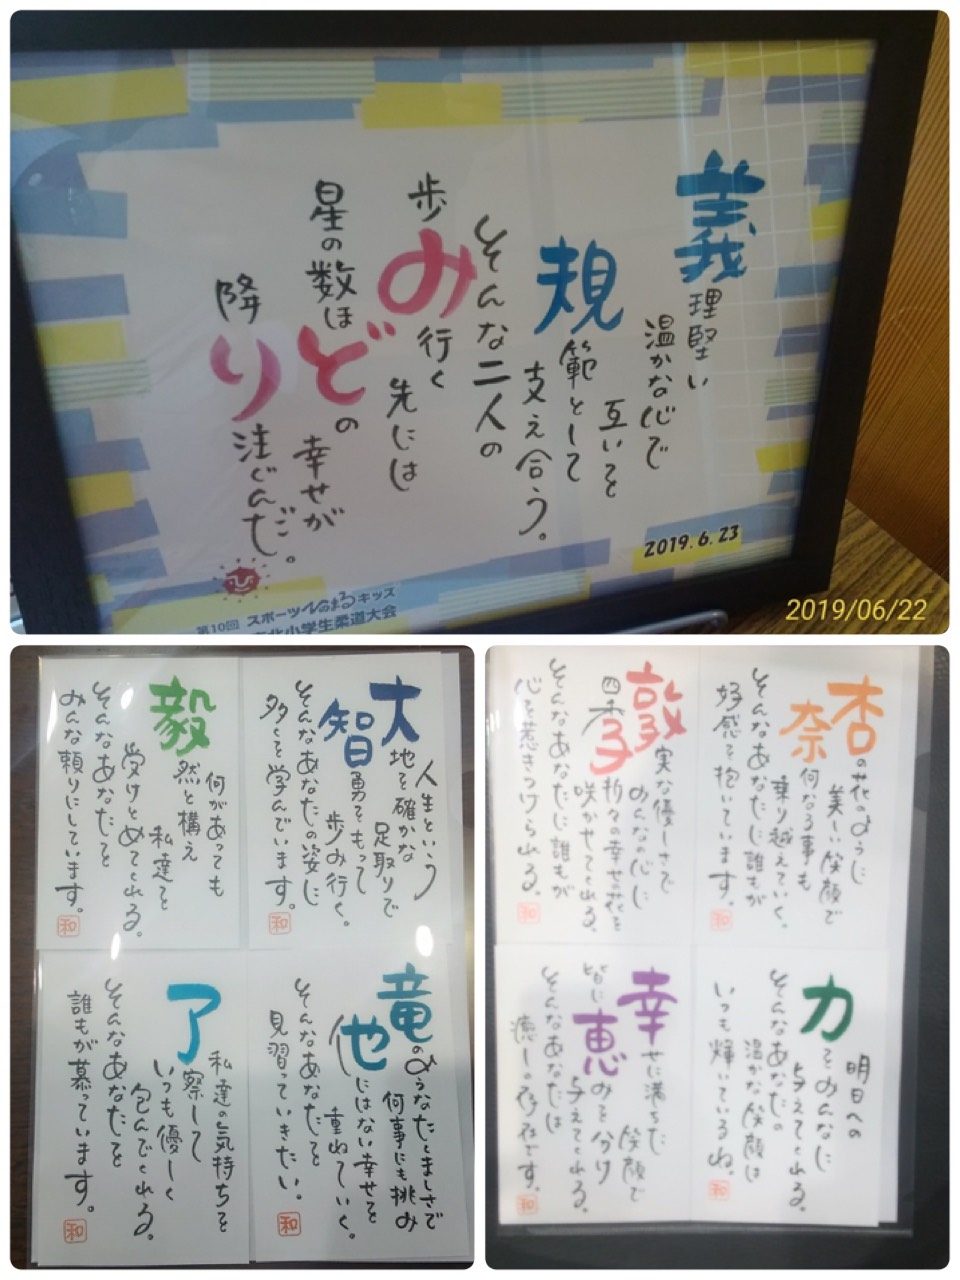 義理堅い
温かな心で
互いを
規範として
支え合う。
そんな二人の
歩み行く
先には
星の数ほ
どの
幸せが
降り注ぐんだ。
2019.6.23
第10回 スポーツひのまるキッズ
小学生柔道大会
2019/06/22
人生という
大地を確かな
足取りで
智勇をもって
歩み行く。
そんなあなたの姿に
多くを学んでいます。
和
何があっても
毅然と構え
私達を
受けとめてくれる。
そんなあなたを
みんな頼りにしています。
和
竜のようなたくましさで
何事にも挑み
他にはない幸せを
重ねていく。
そんなあなたを
見習っていきたい。
和
私達の気持ちを
了察して
いつも優しく
包んでくれる。
そんなあなたを
誰もが慕っています。
和
杏の花のように
美しい笑顔で
奈何なる事も
乗り越えていく。
そんなあなたに誰もが
好感を抱いています。
和
敦実な優しさで
みんなの心に
四季折々の幸せの花を
咲かせてくれる。
そんなあなたに誰もが
心を惹きつけられる。
和
明日への
力をみんなに
与えてくれる。
そんなあなたの
温かな笑顔は
いつも輝いているね。
和
幸せに満ちた
笑顔で
皆に恵みを分け
与えてくれる。
そんなあなたは
癒しの存在です。
和